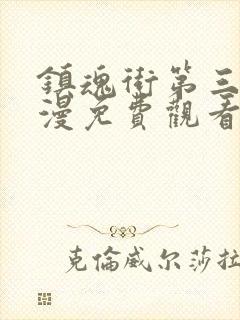 鎮魂街第三
漫免費觀看
克倫威尔莎拉